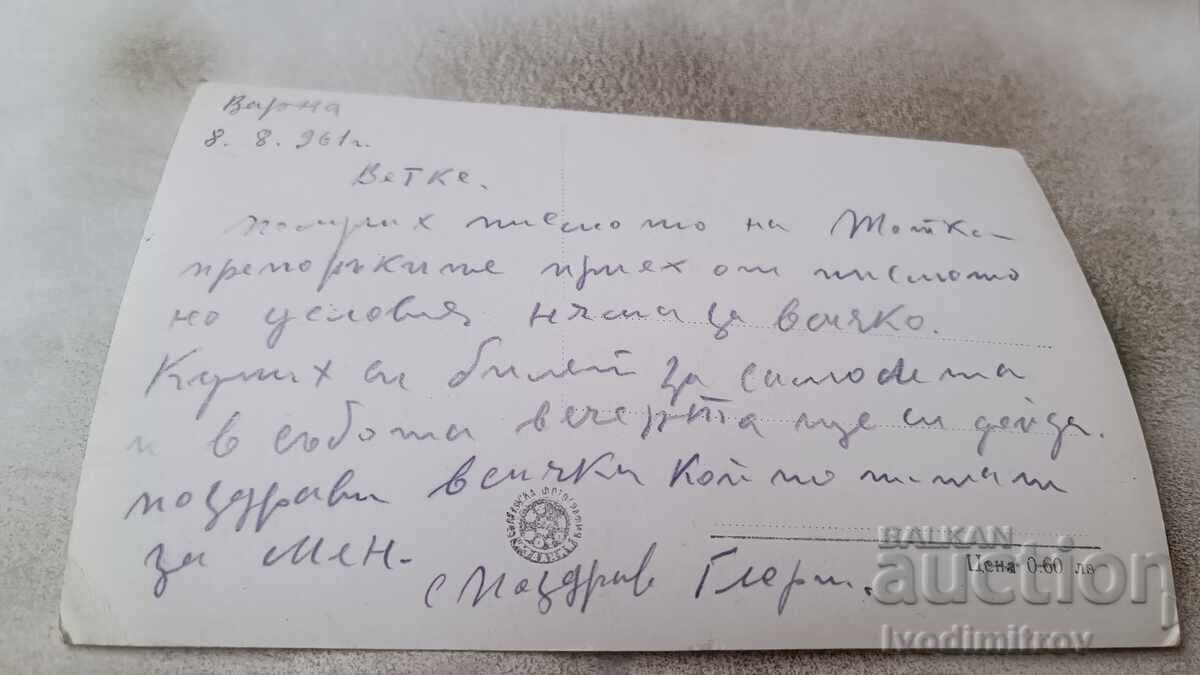 Варна
8. 8. 961 г.
Ветке.
получих писмото на Тотка
препоръките приех от писмото
но условия няма за всичко.
Купих си билет за самолета
и в събота вечерта ще си дойда.
поздрави всички кой по питат
за мен.
с поздрав
Цена 0·60 лв
BALKAN
auction
Ivodimitrov